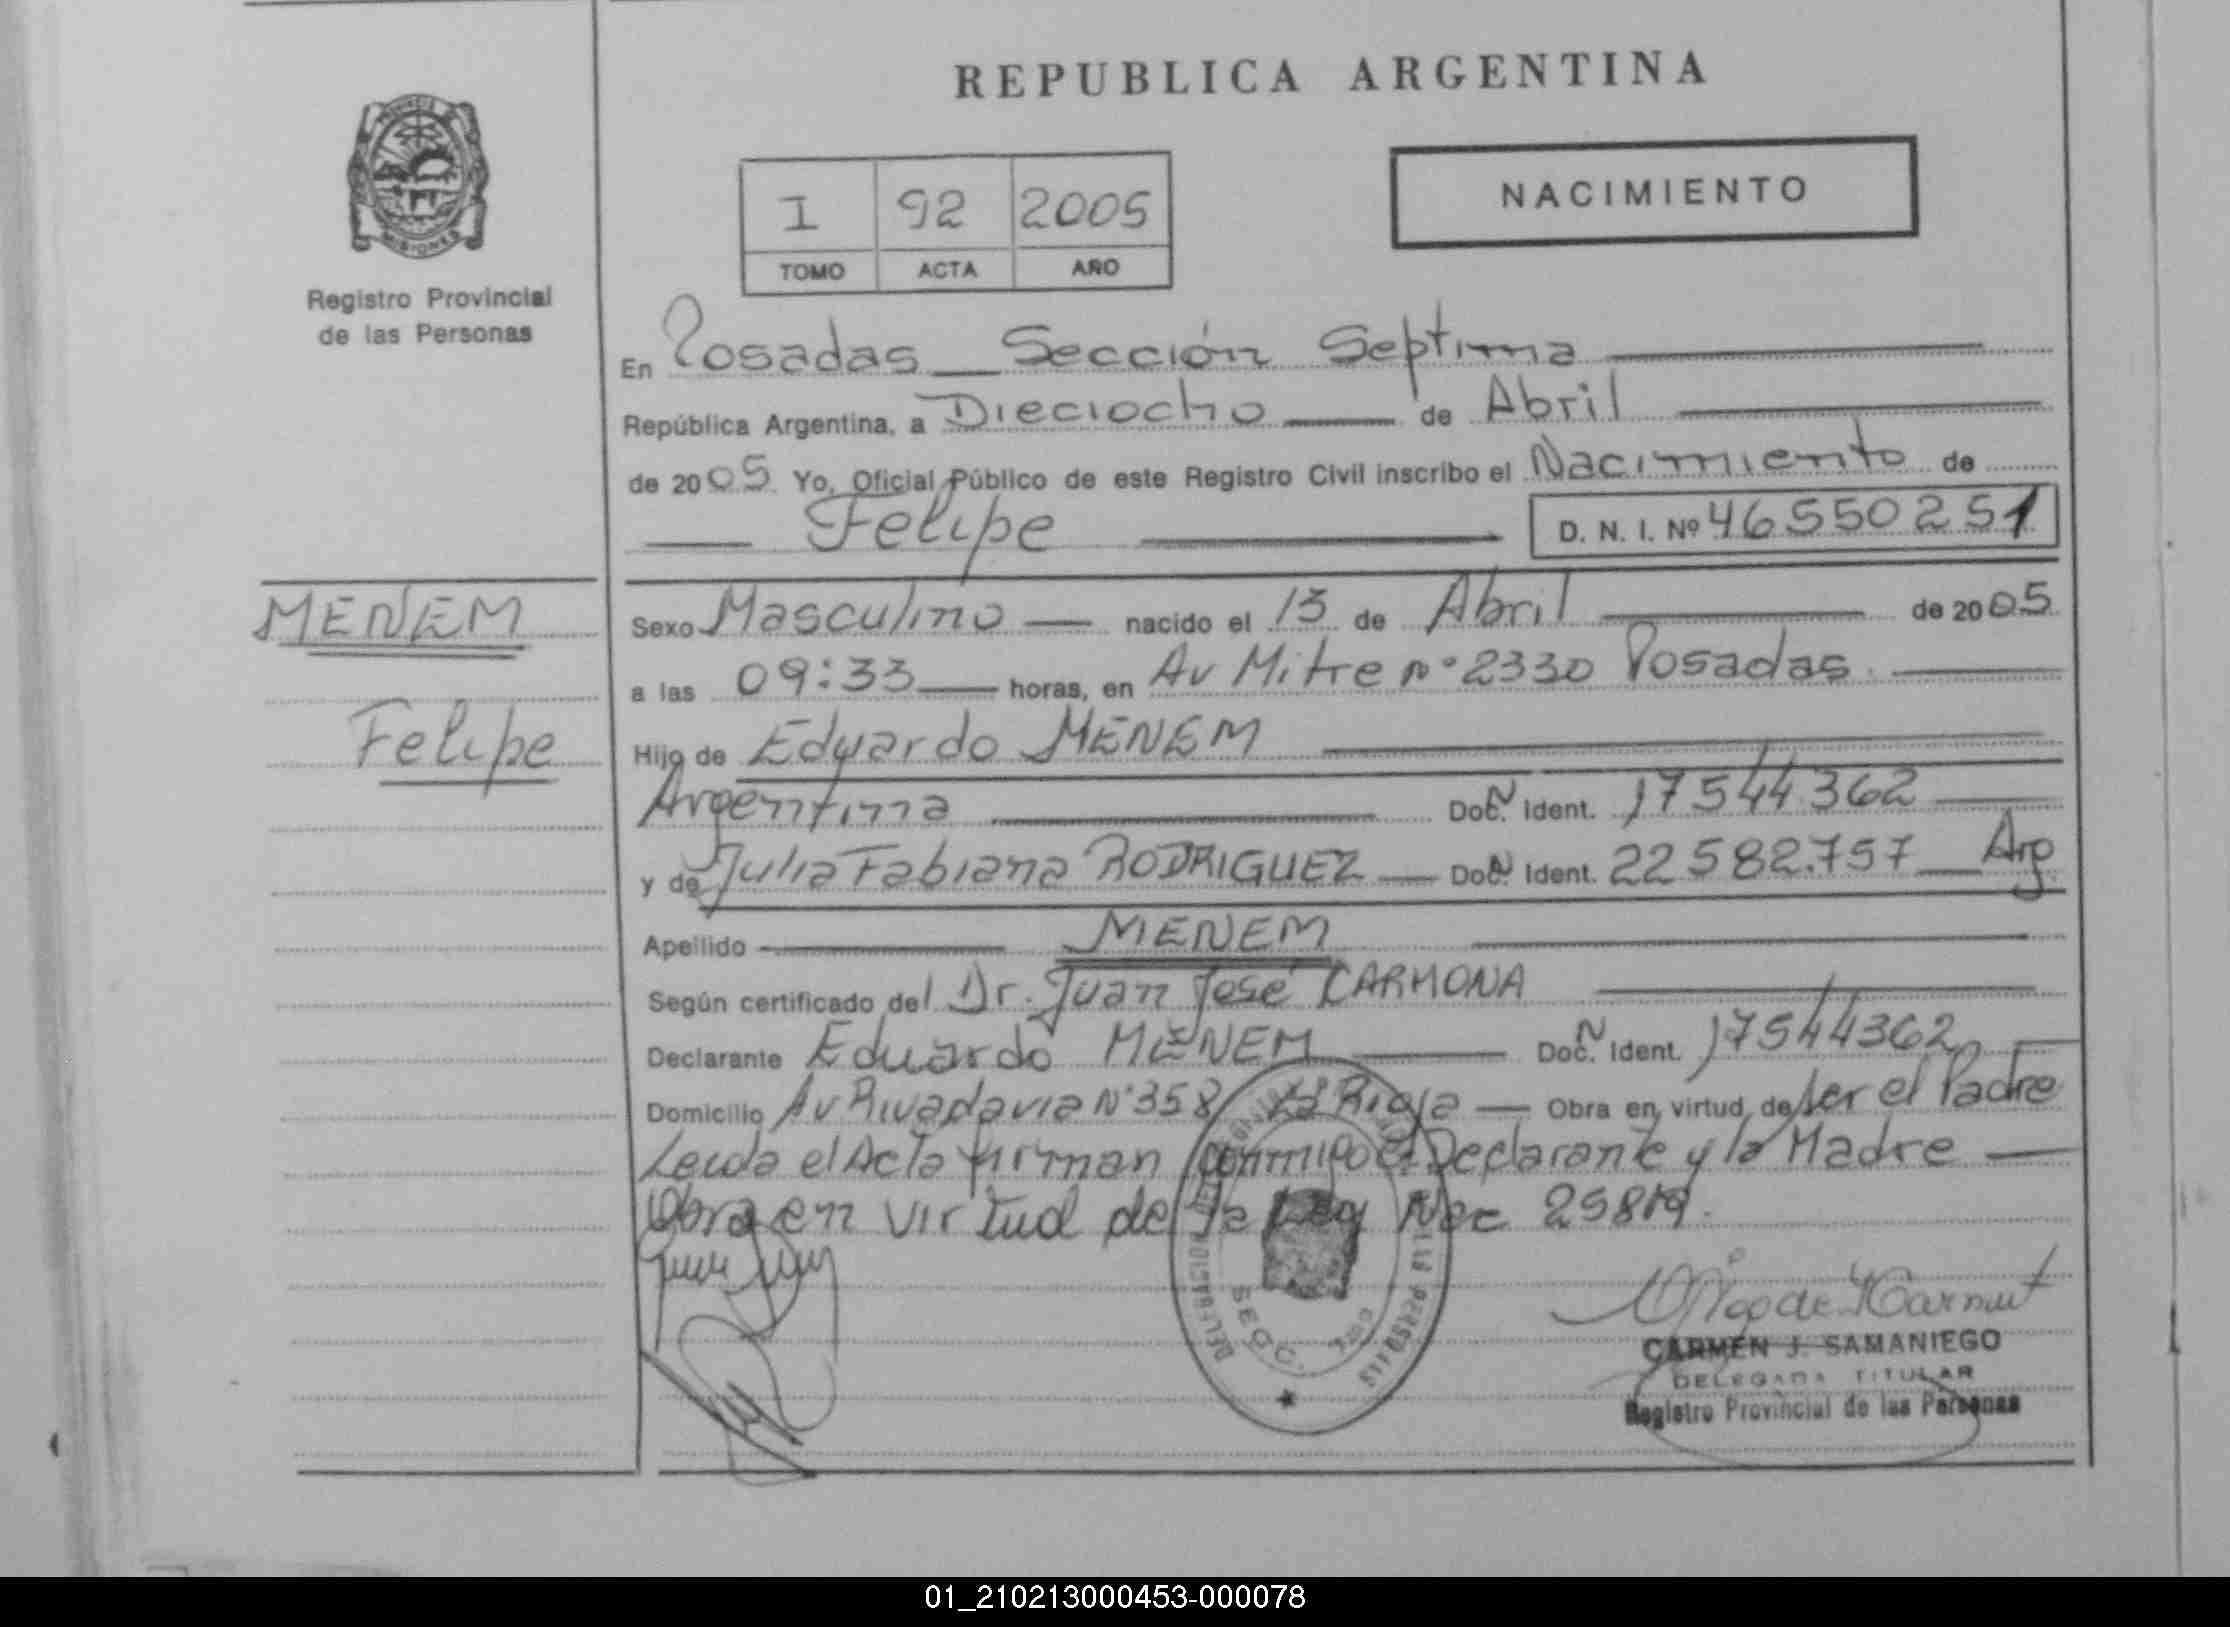 REPUBLICA ARGENTINA
PROVINCIA
MISIONES
Registro Provincial
de las Personas
NACIMIENTO
I 92 2005
TOMO ACTA AÑO
En Posadas — Sección Septima
República Argentina, a Dieciocho de Abril
de 2005 Yo, Oficial Público de este Registro Civil inscribo el Nacimiento de
Felipe D. N. I. Nº 46550251
MENEM
Felipe
Sexo Masculino nacido el 13 de Abril de 2005
a las 09:33 horas, en Av Mitre nº 2330 Posadas.
Hijo de Eduardo MENEM
Argentina Doc. Ident. 17544.362
y de Julia Fabiana RODRIGUEZ Doc. Ident. 22582.757 Arg
Apellido MENEM
Según certificado del Dr. Juan José CARMONA
Declarante Eduardo MENEM Doc. Ident. 17544362
Domicilio Av Rivadavia Nº 358 La Rioja Obra en virtud de ser el Padre
Leida el Acta firman conmigo el Declarante y la Madre
Obra en virtud de la Ley Nac 25819.
SECC.
CARMEN J. SAMANIEGO
DELEGADA TITULAR
Registro Provincial de las Personas
01_210213000453-000078